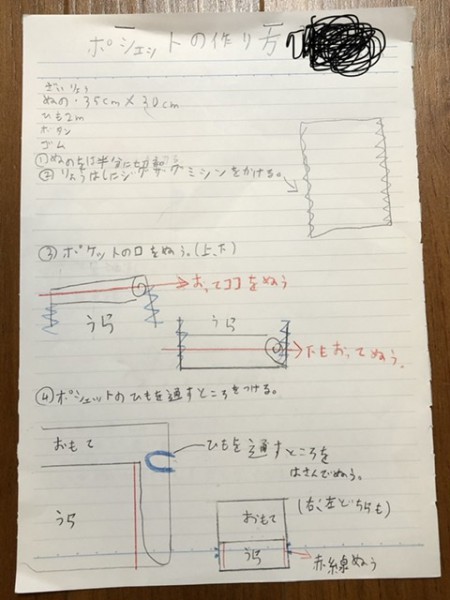 ポシェットの作り方
ざいりょう
ぬの・35cm×30cm
ひも2m
ボタン
ゴム
①ぬのを半分に切る
②りょうはしにジグザグミシンをかける。
③ポケットの口をぬう。(上、下)
おってココをぬう
うら
うら
下もおってぬう。
④ポシェットのひもを通すところをつける。
おもて
ひもを通すところを
はさんでぬう。
うら
(右、左どちらも)
おもて
うら
赤線ぬう